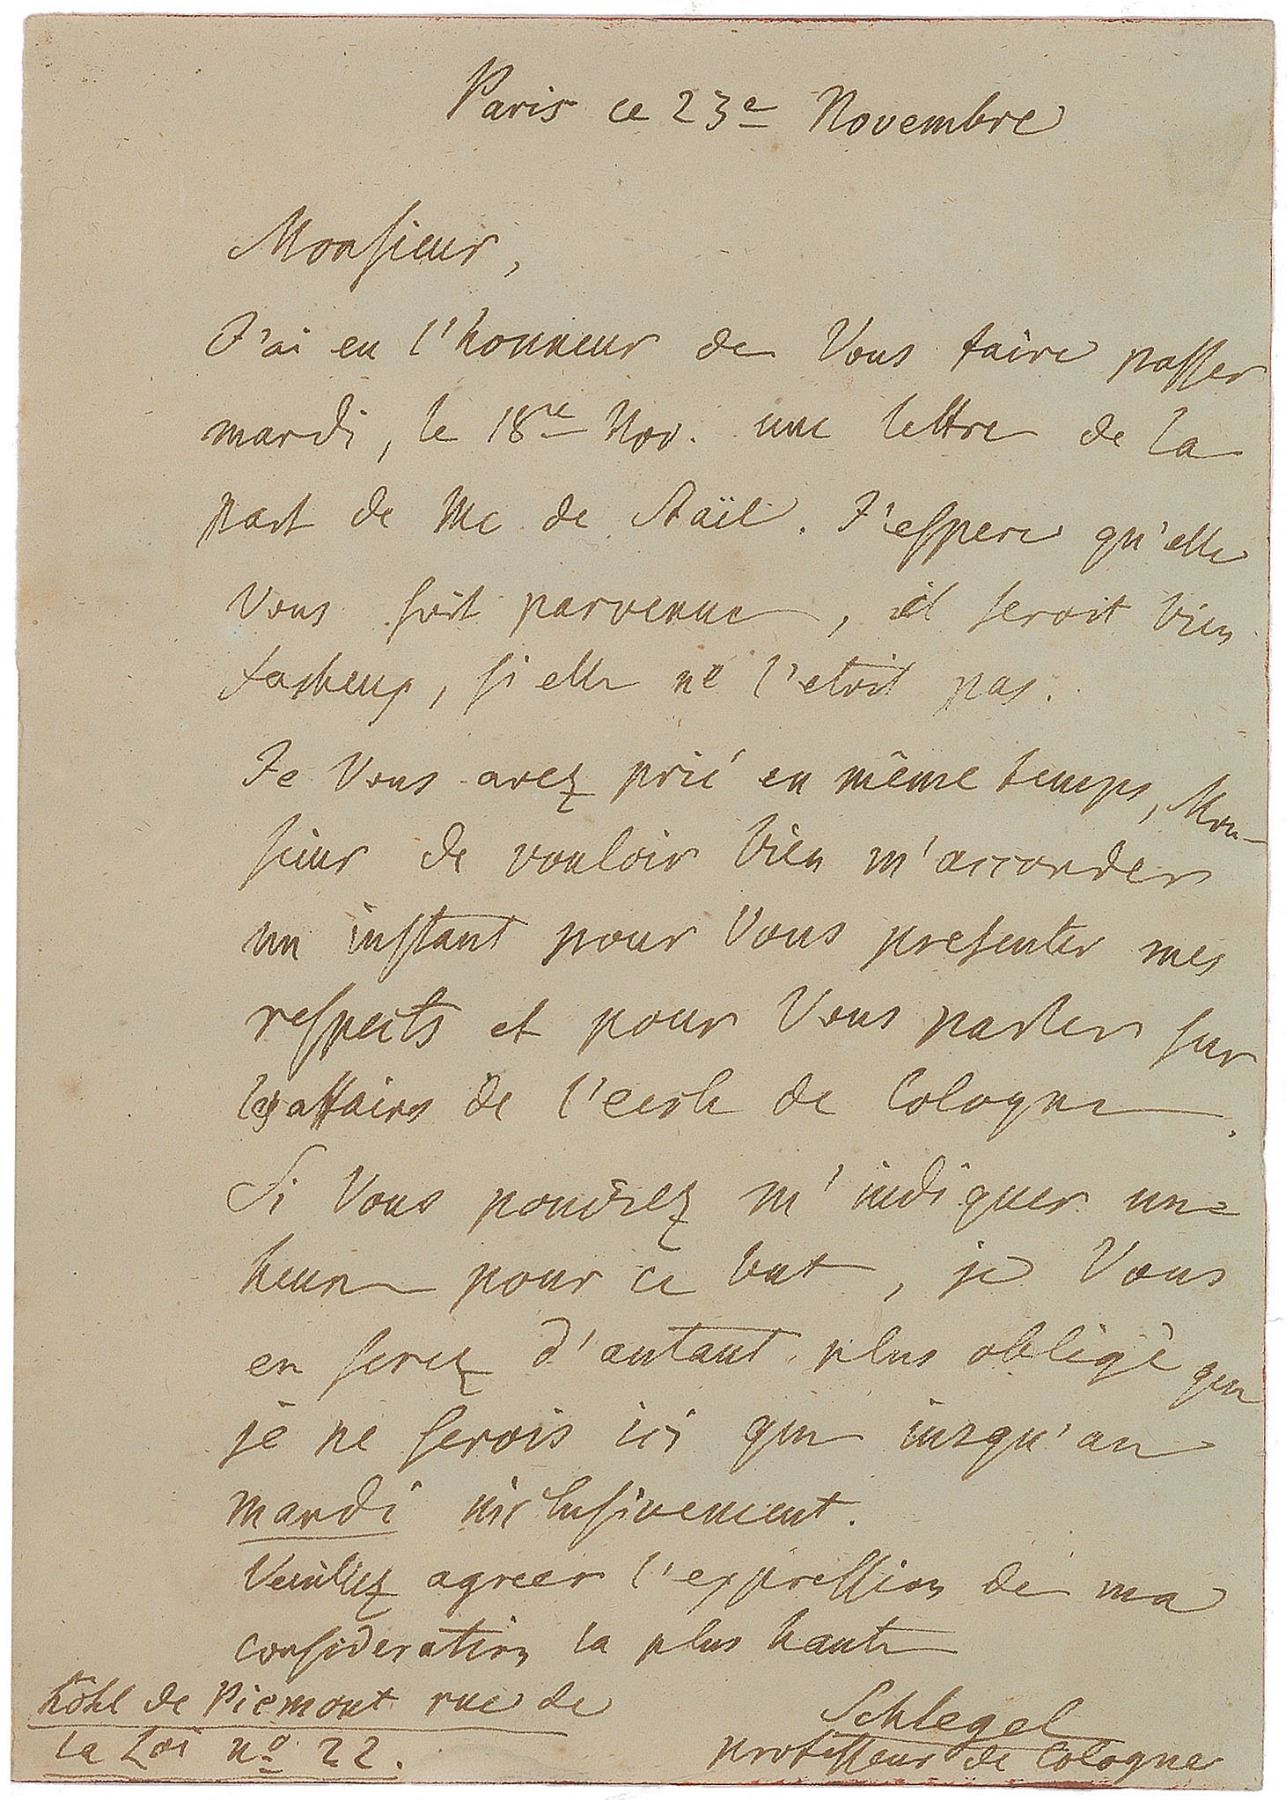 Paris ce 23e Novembre
Monsieur,
J'ai eu l'honneur de Vous faire passer
mardi, le 18re Nov. une lettre de la
part de Me de Staël. J'espere qu'elle
Vous soit parvenue, il seroit bien
facheux, si elle ne l'etoit pas.
Je Vous avez prié en même temps, Mon-
sieur de vouloir bien m'accorder
un instant pour Vous presenter mes
respects et pour Vous parler sur
les affaires de l'ecole de Cologne.
Si Vous pouviez m'indiquer une
heure pour ce but, je Vous
en serez d'autant plus obligé que
je ne serois ici que jusqu'au
mardi inclusivement.
Veuillez agreer l'expression de ma
consideration la plus haute
hôtel de Piemont rue de
la Loi no 22.
Schlegel
professeur de Cologne